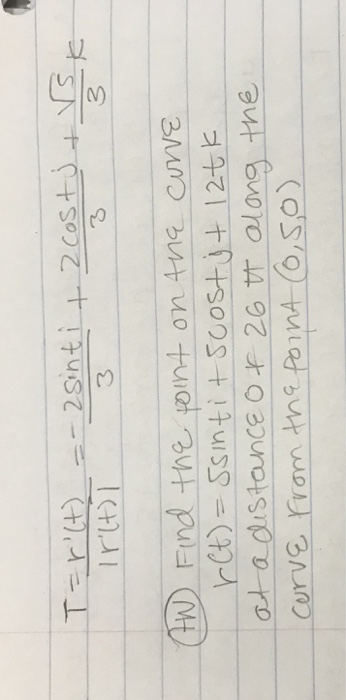 T = r'(t) / |r'(t)| = -2sinti / 3 + 2costj / 3 + √5 / 3 k
HW Find the point on the curve
r(t) = 5sinti + 5costj + 12tk
at a distance of 26π along the
curve from the point (0,5,0)